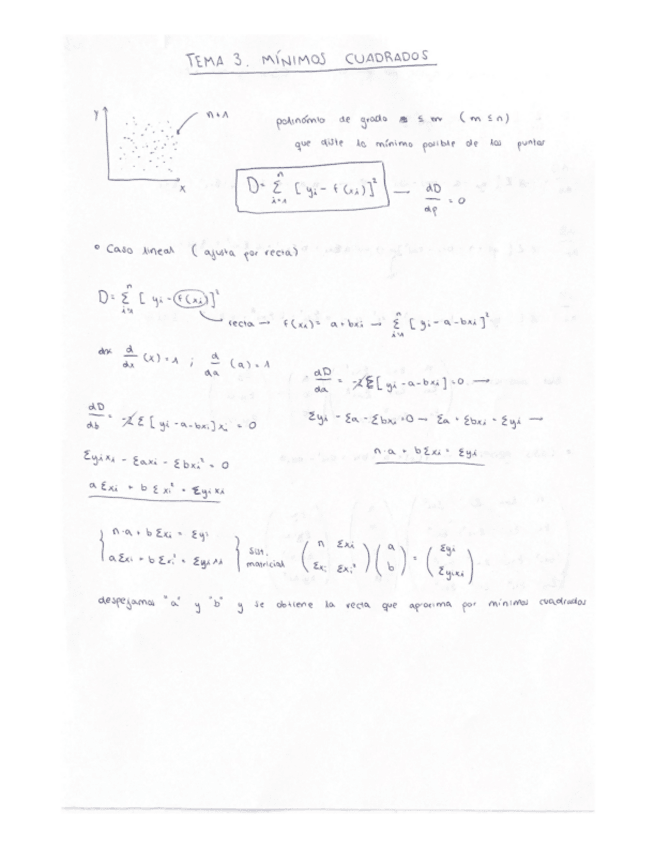 TEMA 3. MÍNIMOS CUADRADOS
y
n+1
x
polinomio de grado ≤ m (m ≤ n)
que diste lo mínimo posible de los puntos
D = Σ_{i=1}^{n} [yi - f(xi)]² → dD/dp = 0
• Caso lineal (ajusta por recta)
D = Σ_{i=1}^{n} [yi - f(xi)]²
recta → f(xi) = a + bxi → Σ_{i=1}^{n} [yi - a - bxi]²
d/dx (x) = 1 ; d/da (a) = 1
dD/da = -2 Σ [yi - a - bxi] = 0 →
dD/db = -2 Σ [yi - a - bxi] xi = 0
Σyi - Σa - Σbxi = 0 → Σa + Σbxi = Σyi →
n·a + bΣxi = Σyi
Σyixi - Σaxi - Σbxi² = 0
aΣxi + bΣxi² = Σyixi
{ n·a + bΣxi = Σyi
aΣxi + bΣxi² = Σyixi } sist. matricial ( n Σxi
Σxi Σxi² ) ( a
b ) = ( Σyi
Σyixi )
despejamos "a" y "b" y se obtiene la recta que aproxima por mínimos cuadrados